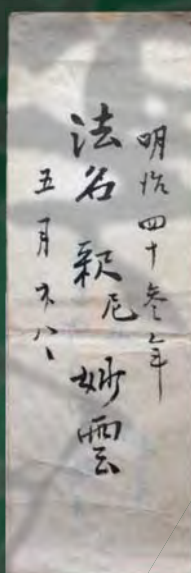 明治四十参年
法名 釈尼 妙雲
五月廿八